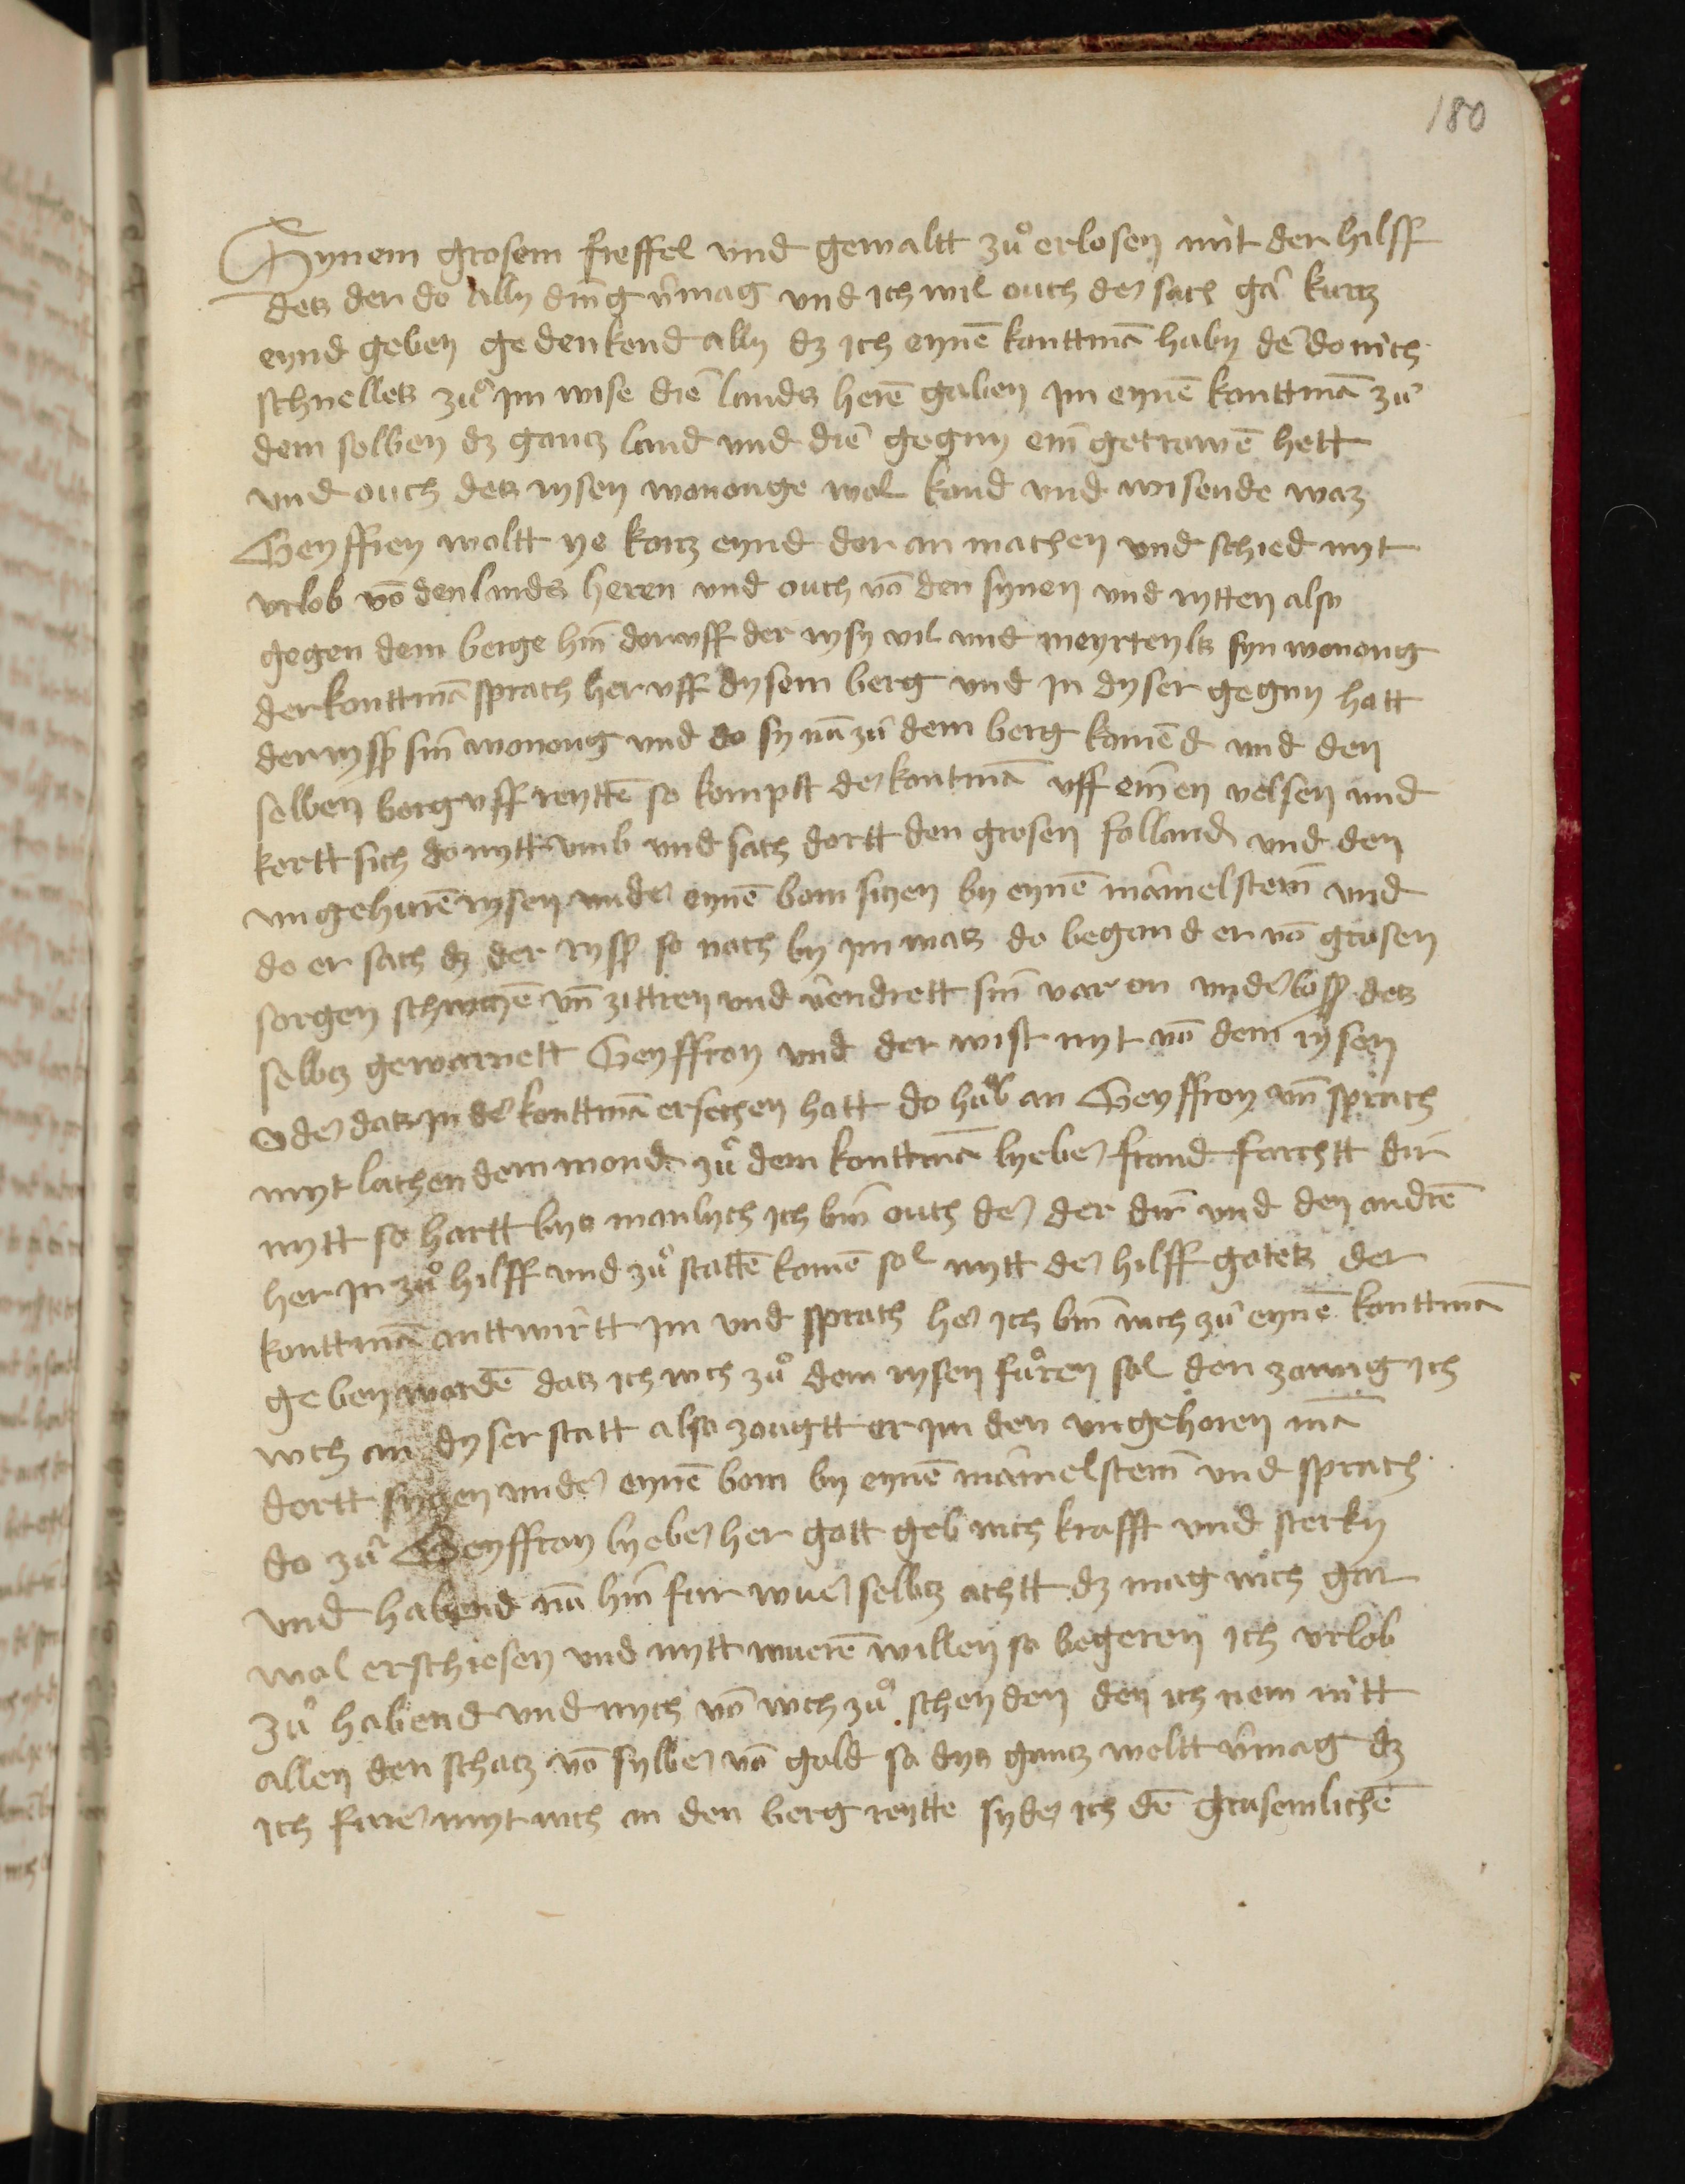 180
Synem grosem freffel vnd gewaltt zuͦ erlosen mit der hilff
dets der do ally ding v̄mag vnd ich wil ouch der sach gā kurtz
eynd geben gedenkend ally dz ich eynē konttmā haby dē do mich
schnellets zuͦ im wise die landts herē gaben im eynē konttmā zuͦ
dem selben dz gantz land vnd die gegny ein getrowē hett
vnd ouch dets rysen wononge wol kond vnd wisende waz
Geyffroy woltt ye kortz eynd dor an machen vnd schied myt
vrlob vō den landts heren vnd ouch vō den synen vnd rytten also
gegen dem berge hin doruff der rysy vil vnd meyrteylts syn wonong
der konttmā sprach her vff dysem berg vnd in dyser gegny hatt
der ryss sin wonong vnd do sy nū zuͦ dem berg komēd vnd den
selben berg vff reyttē so kompt der kontmā vff einen velsen vnd
kertt sich do mytt vmb vnd sach dortt den grosen folland vnd den
vngehurē rysen vnder eynē bom sitzen by eynē mārmelstein vnd
do er sach dz der ryss so nach by im wats do begond er vō grosen
sorgen schwitzē vn̄ zittren vnd v̄endrett sin varen vnder loss dets
selbtz gewarnett Geyffroy vnd der wist nyt vō dem rysen
oder dats in der konttmā ersechen hatt do huͦb an Geyffroy vn̄ sprach
myt lachendem mond zuͦ dem konttmā lyeber frond forchtt dir
nytt so hartt bys manlych ich bin ouch der der dir vnd den andrē
her in zuͦ hilff vnd zuͦ stattē komē sol mytt der hilff gotets der
konttmā anttwirtt im vnd sprach her ich bin vch zuͦ eynē konttmā
geben wordē dats ich vch zuͦ dem rysen fuͦren sol den zowg ich
vch an dyser statt also zougtt er im den vngehoren mā
dortt sytzen vnder eynē bom by eynē mārmelstein vnd sprach
do zuͦ Geyffroy lyeber her gott geb vch krafft vnd sterky
vnd habend nū hin fur vwer selbtz achtt dz mag vch gar
wol erschiesen vnd mytt vwerē willen so begeren ich vrlob
zuͦ habend vnd mych vō vch zuͦ scheyden den ich nem nitt
allen den schatz vō sylber vō gold so dys gantz weltt v̄mag dz
ich furer myt vch in den berg reytte syder ich dē grusemlichē